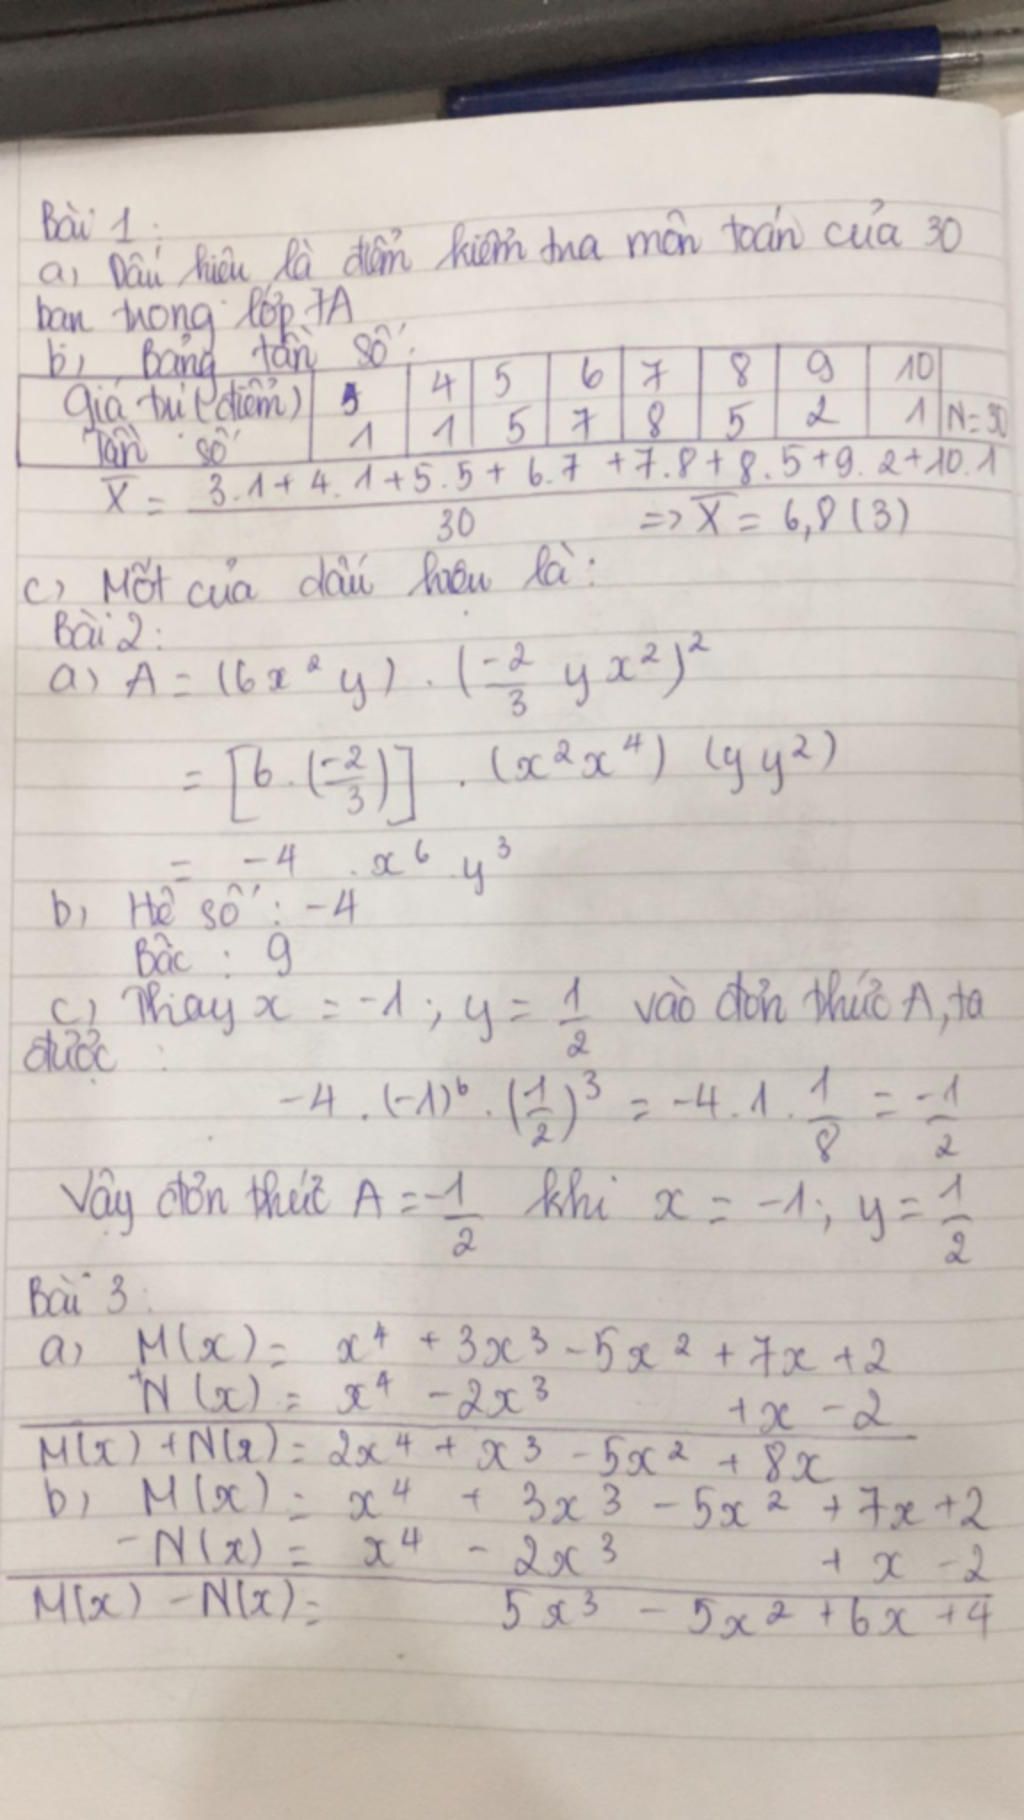 Bài 1:
a, Dấu hiệu là điểm kiểm tra môn toán của 30
bạn trong lớp 7A
b, Bảng tần số:
Giá trị (điểm) 3 4 5 6 7 8 9 10
Tần số 1 1 5 7 8 5 2 1 N=30
X̄ = (3.1+4.1+5.5+6.7+7.8+8.5+9.2+10.1)/30 => X̄ = 6,8(3)
c, Mốt của dấu hiệu là:
Bài 2:
a, A = (6x²y) . (-2/3 yx²)²
= [6.(-2/3)] . (x²x⁴) (yy²)
= -4 . x⁶ y³
b, Hệ số: -4
Bậc : 9
c, Thay x = -1; y = 1/2 vào đơn thức A, ta
được :
-4 . (-1)⁶ . (1/2)³ = -4.1.1/8 = -1/2
Vậy đơn thức A = -1/2 khi x = -1; y = 1/2
Bài 3:
a, M(x) = x⁴ + 3x³ - 5x² + 7x + 2
+ N(x) = x⁴ - 2x³ + x - 2
M(x) + N(x) = 2x⁴ + x³ - 5x² + 8x
b, M(x) = x⁴ + 3x³ - 5x² + 7x + 2
- N(x) = x⁴ - 2x³ + x - 2
M(x) - N(x) = 5x³ - 5x² + 6x + 4